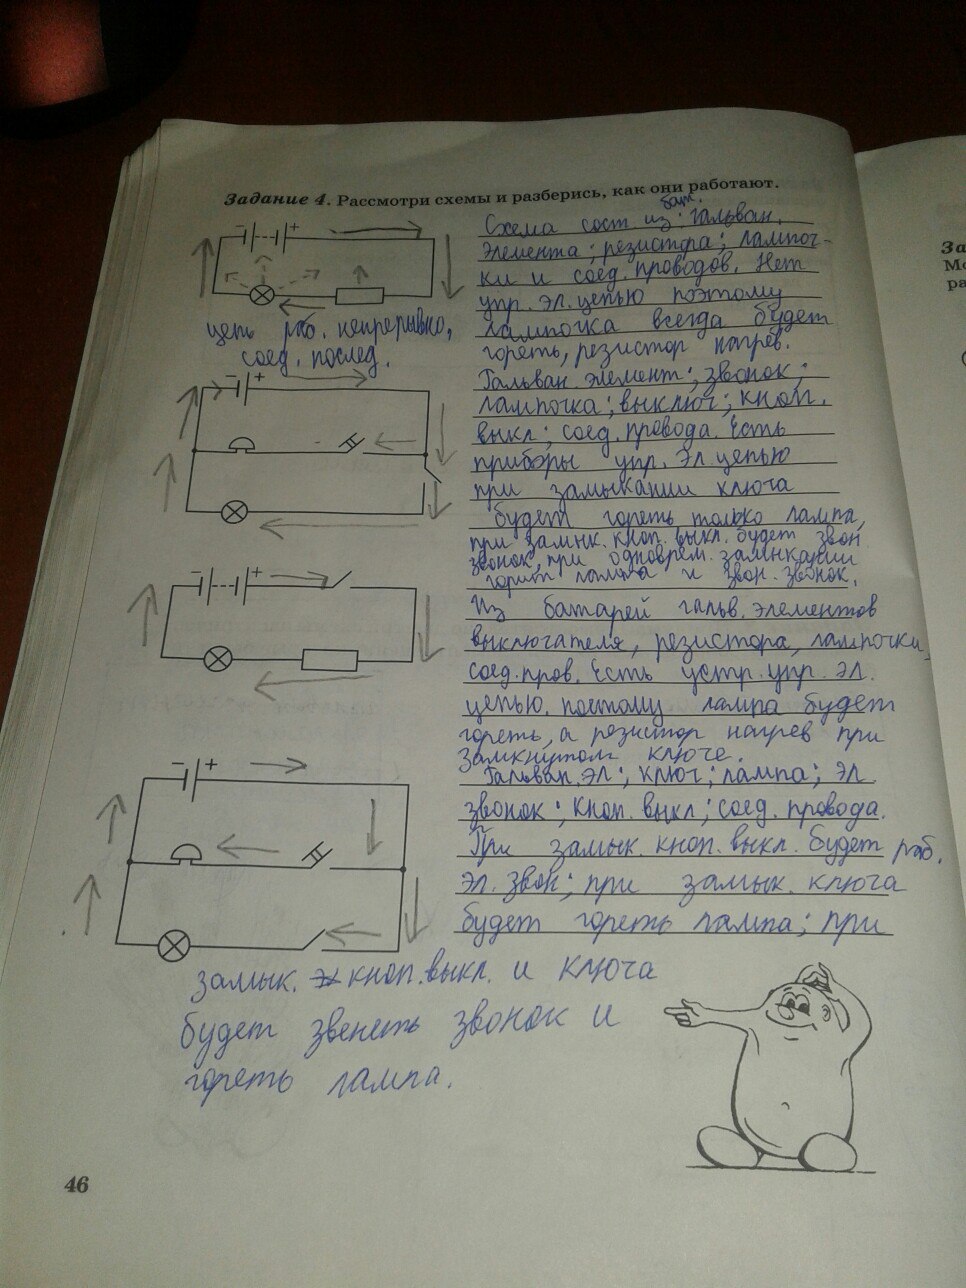 Задание 4. Рассмотри схемы и разберись, как они работают.
Схема сост из: бат. гальван.
элемента; резистора; лампоч-
ки и соед. проводов. Нет
упр. эл. цепью поэтому
лампочка всегда будет
гореть, резистор нагрев.
цепь раб. непрерывно,
соед. послед.
Гальван. элемент; звонок;
лампочка; выключ; кноп.
выкл; соед. провода. Есть
приборы упр. эл. цепью
при замыкании ключа
будет гореть только лампа,
при замык. кноп. выкл. будет звон
звонок, при одноврем. замыкании
горит лампа и звон. звонок.
Из батарей гальв. элементов
выключателя, резистора, лампочки
соед. пров. Есть устр. упр. эл.
цепью. поэтому лампа будет
гореть, а резистор нагрев при
замкнутом ключе.
Гальван. эл; ключ; лампа; эл
звонок; кноп. выкл; соед. провода.
При замык. кноп. выкл. будет раб.
эл. звон; при замык. ключа
будет гореть лампа; при
замык. кноп. выкл. и ключа
будет звенеть звонок и
гореть лампа.
46
За
Мо
ра
− +
− +
− +
− +